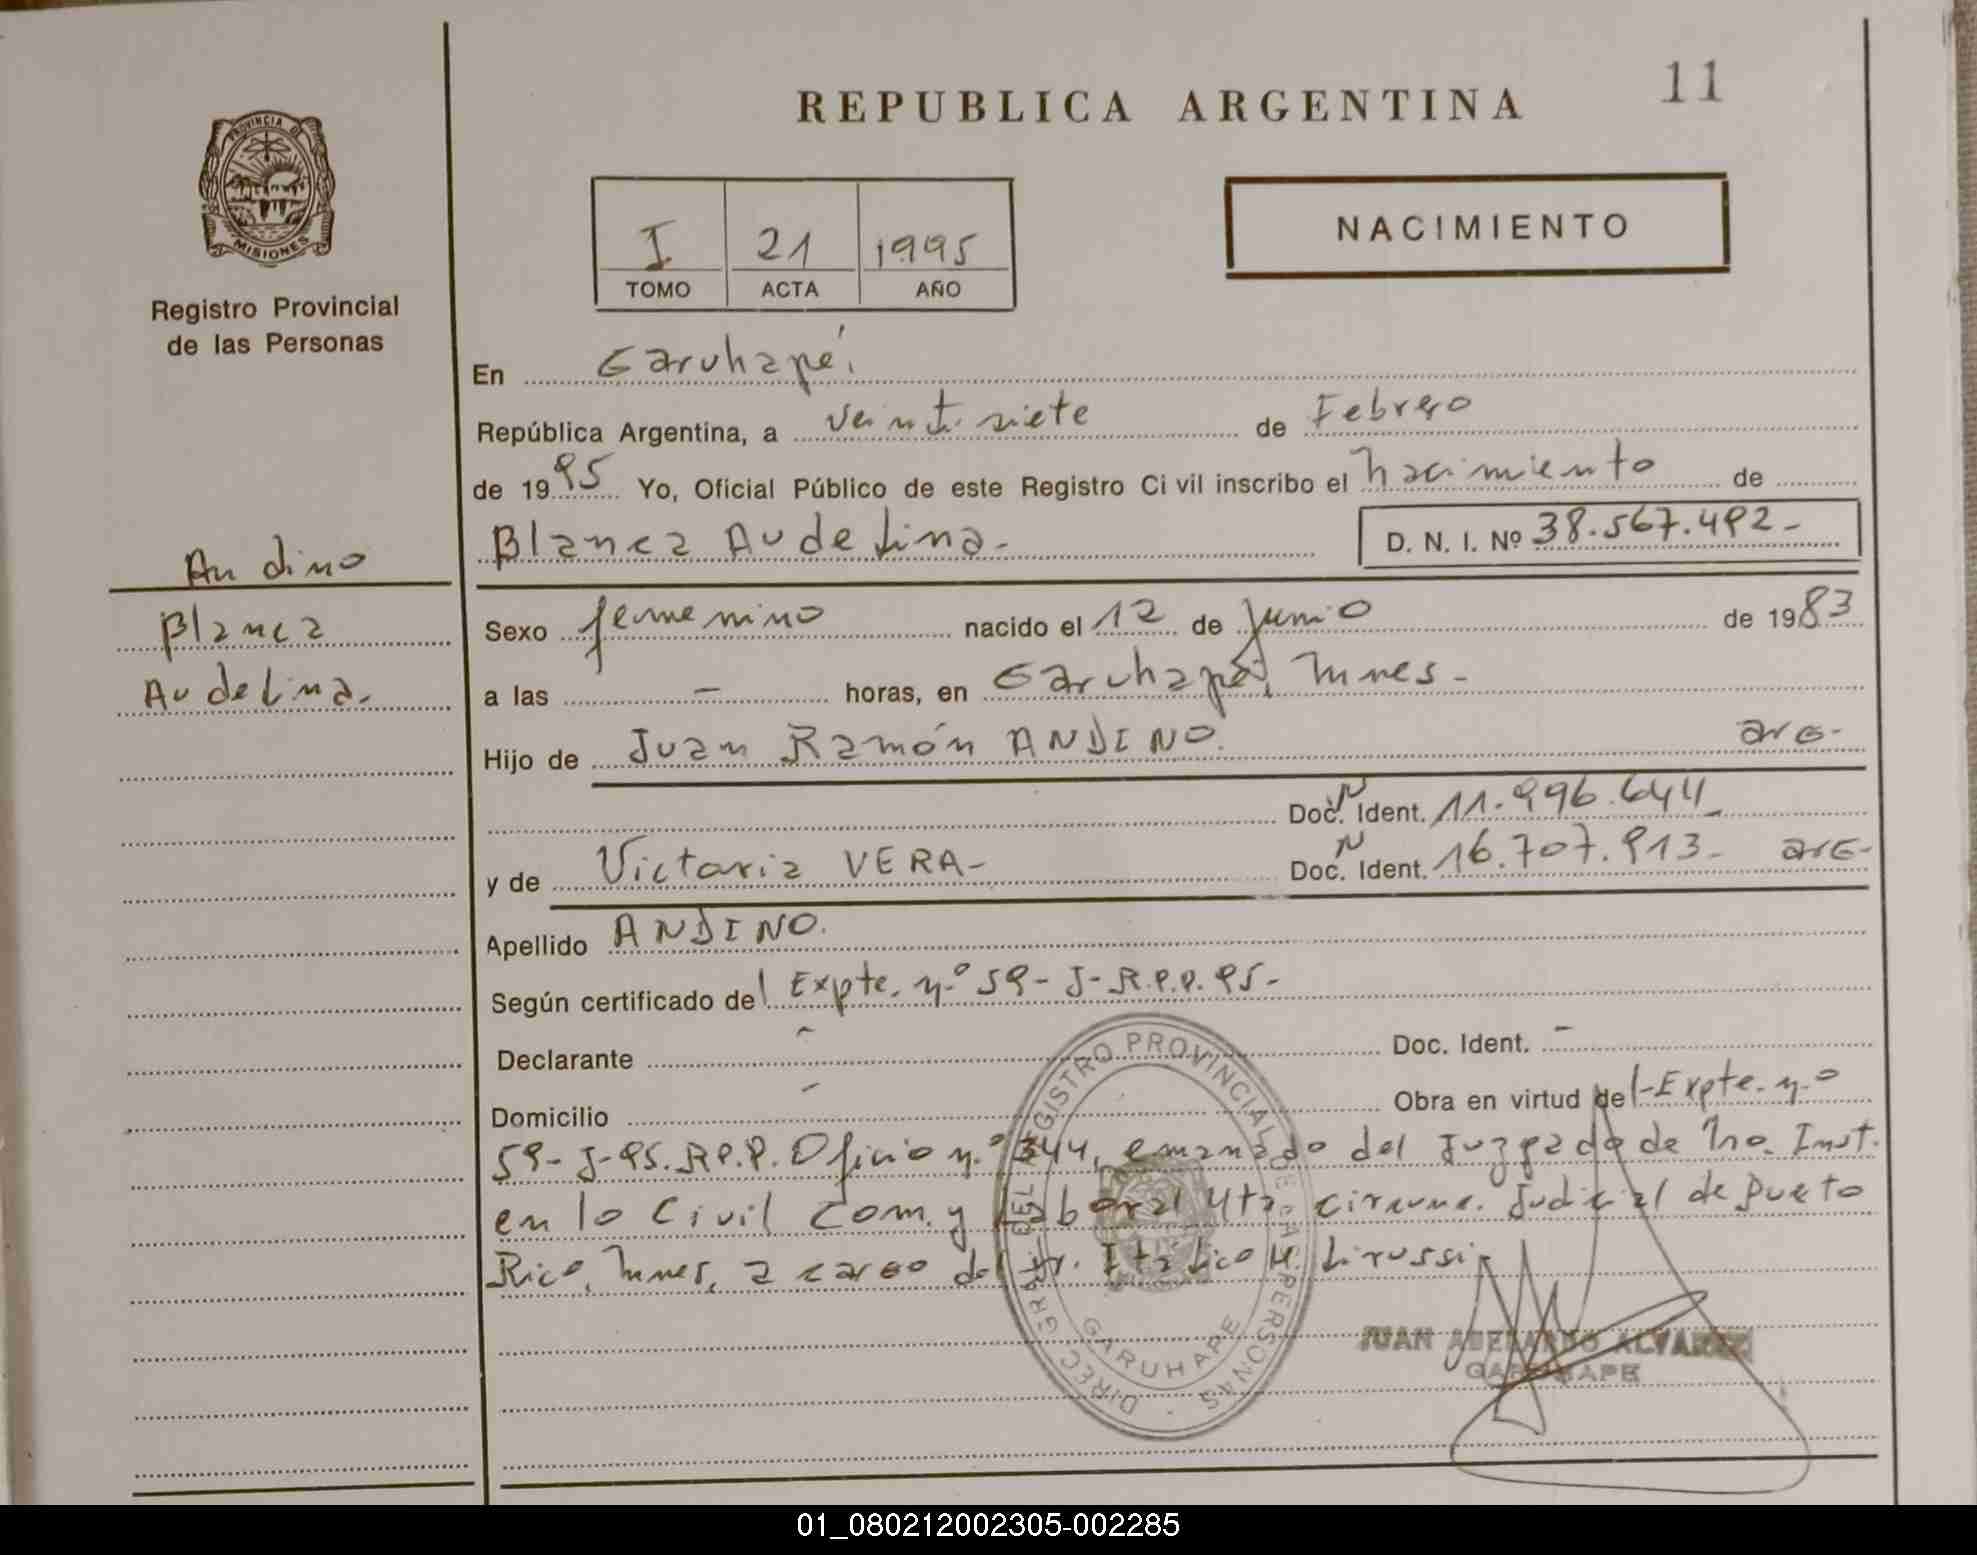 REPUBLICA ARGENTINA
11
PROVINCIA DE
MISIONES
Registro Provincial
de las Personas
I 21 1995
TOMO ACTA AÑO
NACIMIENTO
En Garuhapé,
República Argentina, a veintisiete de Febrero
de 1995 Yo, Oficial Público de este Registro Civil inscribo el nacimiento de
Blanca Audelina.
D. N. I. Nº 38.567.492-
Andino
Blanca
Audelina.
Sexo femenino nacido el 12 de Junio de 1983
a las - horas, en Garuhapé, Mnes-
Hijo de Juan Ramón ANDINO. arg-
Doc. N Ident. 11.996.644
y de Victoria VERA- Doc. N Ident. 16.707.913- arg-
Apellido ANDINO.
Según certificado del Expte. n.º 59-J-R.P.P. 95-
Declarante - Doc. Ident. -
Domicilio - Obra en virtud del-Expte. n.º
59-J-95.R.P.P. Oficio n.º 344, emanado del Juzgado de 1ro. Inst.
en lo Civil Com. y Laboral 4ta. circunc. Judicial de Puerto
Rico, Mnes, a cargo del Dr. Itálico H. Lirussi
DIREC. GRAL. DEL REGISTRO PROVINCIAL DE LAS PERSONAS
GARUHAPE
JUAN ABELARDO ALVAREZ
GARUHAPE
01_080212002305-002285